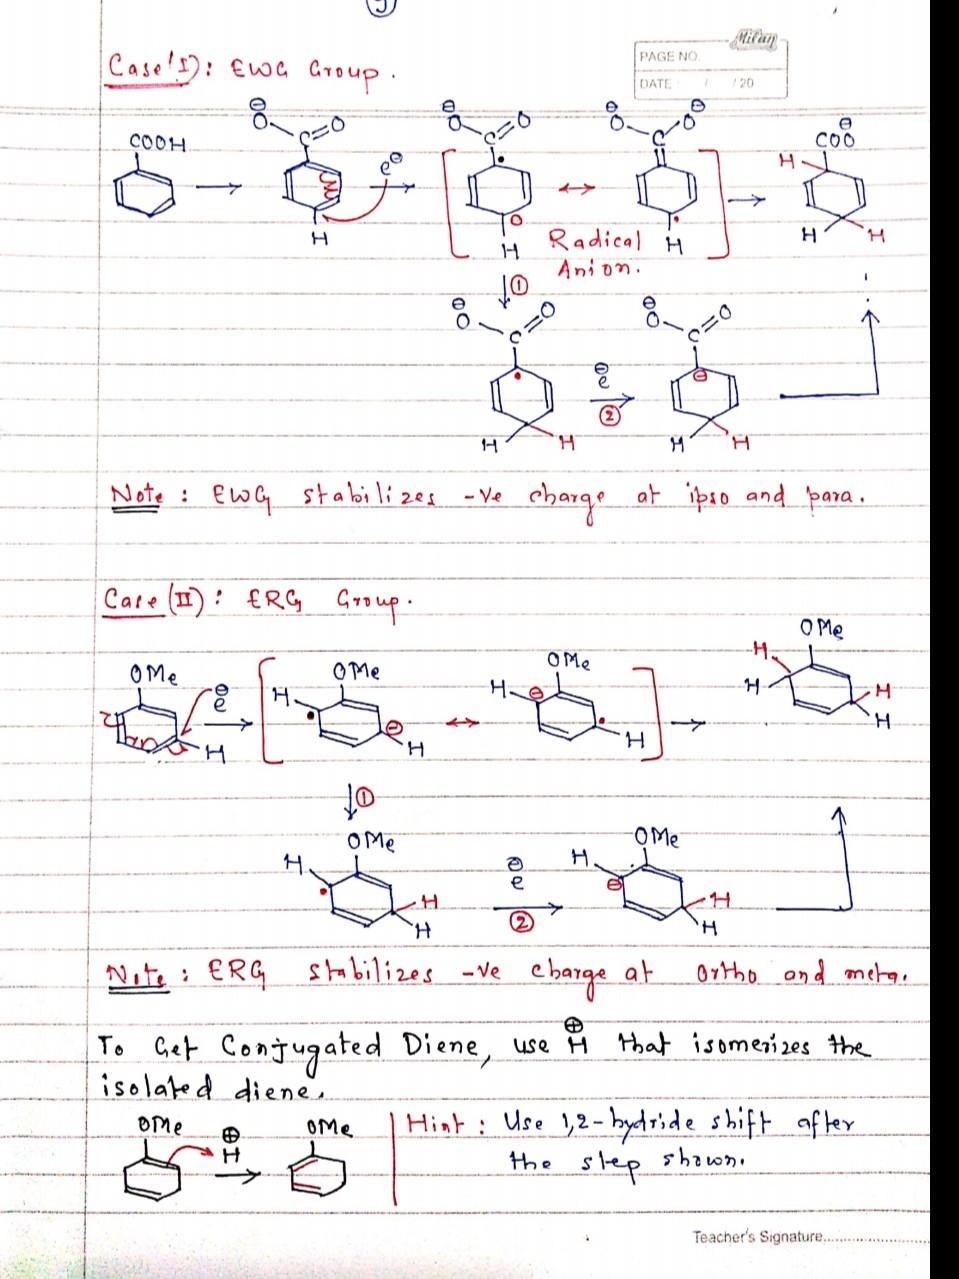 Milan
PAGE NO.
DATE / /20
Case (I): EWG Group.
COOH
⊖O C O
H
e⊖
⊖O C O
H
⊖O C O⊖
H
COO⊖
H
H H
Radical
Anion.
①
⊖O C O
H H
e⊖
②
⊖O C O
⊖
H H
Note : EWG stabilizes -ve charge at ipso and para.
Case (II) : ERG Group.
OMe
H
e⊖
OMe
H ⊖ H
OMe
H ⊖ H
OMe
H
H
H
H
①
OMe
H
H
H
e⊖
②
OMe
H
⊖
H
H
Note : ERG stabilizes -ve charge at ortho and meta.
To Get Conjugated Diene, use H⊕ that isomerizes the
isolated diene.
OMe H⊕ OMe
Hint : Use 1,2-hydride shift after
the step shown.
Teacher's Signature.....................